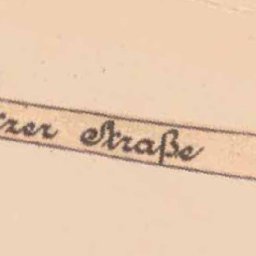 zer Straße